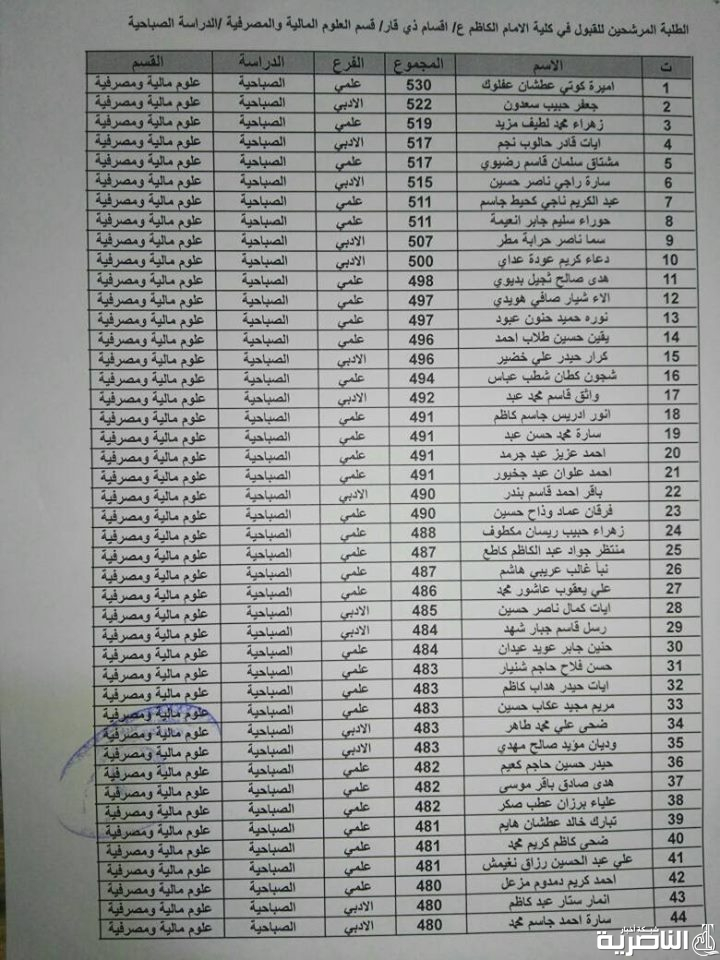 الطلبة المرشحين للقبول في كلية الامام الكاظم ع/ اقسام ذي قار/ قسم العلوم المالية والمصرفية /الدراسة الصباحية
ت الاسم المجموع الفرع الدراسة القسم
1 اميرة كوتي عطشان عفلوك 530 علمي الصباحية علوم مالية ومصرفية
2 جعفر حبيب سعدون 522 الادبي الصباحية علوم مالية ومصرفية
3 زهراء محمد لطيف مزيد 519 علمي الصباحية علوم مالية ومصرفية
4 ايات قادر حالوب نجم 517 الادبي الصباحية علوم مالية ومصرفية
5 مشتاق سلمان قاسم رضيوي 517 علمي الصباحية علوم مالية ومصرفية
6 سارة راجي ناصر حسين 515 الادبي الصباحية علوم مالية ومصرفية
7 عبد الكريم ناجي كحيط جاسم 511 علمي الصباحية علوم مالية ومصرفية
8 حوراء سليم جابر انعيمة 511 علمي الصباحية علوم مالية ومصرفية
9 سما ناصر حرابة مطر 507 الادبي الصباحية علوم مالية ومصرفية
10 دعاء كريم عودة عداي 500 الادبي الصباحية علوم مالية ومصرفية
11 هدى صالح ثجيل بديوي 498 علمي الصباحية علوم مالية ومصرفية
12 الاء شيار صافي هويدي 497 علمي الصباحية علوم مالية ومصرفية
13 نوره حميد حنون عبود 497 علمي الصباحية علوم مالية ومصرفية
14 يقين حسين طلاب احمد 496 علمي الصباحية علوم مالية ومصرفية
15 كرار حيدر علي خضير 496 الادبي الصباحية علوم مالية ومصرفية
16 شجون كطان شطب عباس 494 علمي الصباحية علوم مالية ومصرفية
17 واثق قاسم محمد عبد 492 الادبي الصباحية علوم مالية ومصرفية
18 انور ادريس جاسم كاظم 491 علمي الصباحية علوم مالية ومصرفية
19 سارة محمد حسن عبد 491 علمي الصباحية علوم مالية ومصرفية
20 احمد عزيز عبد جرمد 491 علمي الصباحية علوم مالية ومصرفية
21 احمد علوان عبد جخيور 491 علمي الصباحية علوم مالية ومصرفية
22 باقر احمد قاسم بندر 490 الادبي الصباحية علوم مالية ومصرفية
23 فرقان عماد وذاح حسين 490 علمي الصباحية علوم مالية ومصرفية
24 زهراء حبيب ريسان مكطوف 488 علمي الصباحية علوم مالية ومصرفية
25 منتظر جواد عبد الكاظم كاطع 487 علمي الصباحية علوم مالية ومصرفية
26 نبأ غالب عريبي هاشم 487 علمي الصباحية علوم مالية ومصرفية
27 علي يعقوب عاشور محمد 486 علمي الصباحية علوم مالية ومصرفية
28 ايات كمال ناصر حسين 485 الادبي الصباحية علوم مالية ومصرفية
29 رسل قاسم جبار شهد 484 الادبي الصباحية علوم مالية ومصرفية
30 حنين جابر عويد عيدان 484 علمي الصباحية علوم مالية ومصرفية
31 حسن فلاح حاجم شنيار 483 علمي الصباحية علوم مالية ومصرفية
32 ايات حيدر هداب كاظم 483 علمي الصباحية علوم مالية ومصرفية
33 مريم مجيد عكاب حسين 483 علمي الصباحية علوم مالية ومصرفية
34 ضحى علي محمد طاهر 483 الادبي الصباحية علوم مالية ومصرفية
35 وديان مؤيد صالح مهدي 483 الادبي الصباحية علوم مالية ومصرفية
36 حيدر حسين حاجم كعيم 482 علمي الصباحية علوم مالية ومصرفية
37 هدى صادق باقر موسى 482 علمي الصباحية علوم مالية ومصرفية
38 علياء برزان عطب صكر 482 علمي الصباحية علوم مالية ومصرفية
39 تبارك خالد عطشان هايم 481 علمي الصباحية علوم مالية ومصرفية
40 ضحى كاظم كريم محمد 481 علمي الصباحية علوم مالية ومصرفية
41 علي عبد الحسين رزاق نغيمش 481 علمي الصباحية علوم مالية ومصرفية
42 احمد كريم دمدوم مزعل 480 علمي الصباحية علوم مالية ومصرفية
43 انمار ستار عبد كاظم 480 الادبي الصباحية علوم مالية ومصرفية
44 سارة احمد جاسم محمد 480 الادبي الصباحية علوم مالية ومصرفية
شبكة اخبار
الناصرية